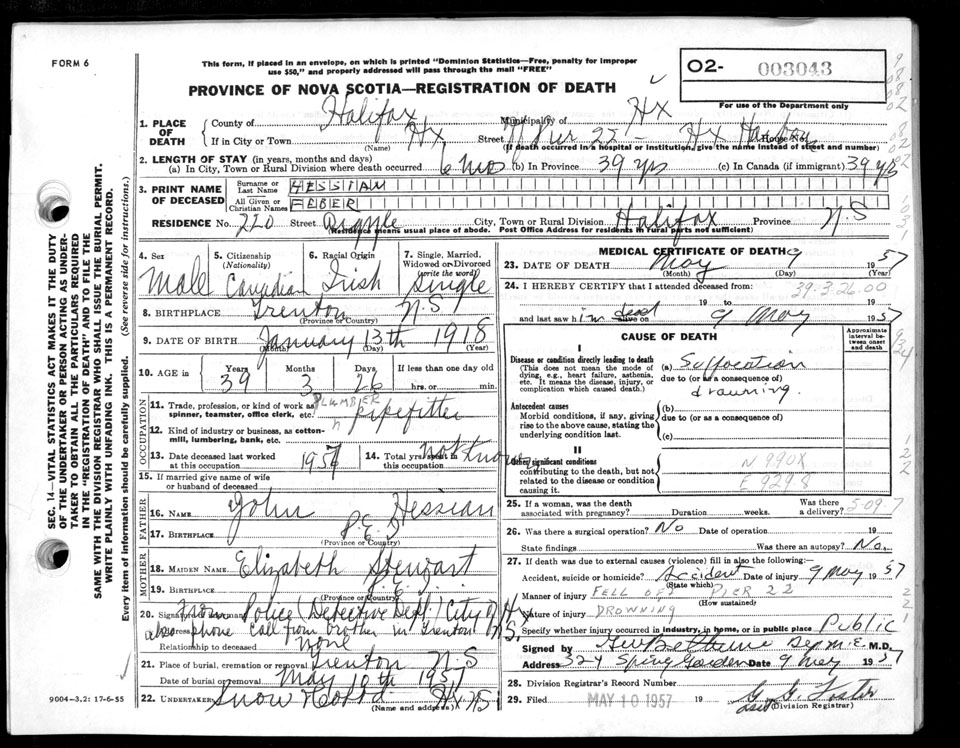 FORM 6
This form, if placed in an envelope, on which is printed "Dominion Statistics—Free, penalty for improper
use $50," and properly addressed will pass through the mail "FREE"
O2- 003043
PROVINCE OF NOVA SCOTIA—REGISTRATION OF DEATH
For use of the Department only
1. PLACE OF DEATH
County of Halifax Municipality of Hx
If in City or Town Hx Street Pier 22 - Hx House No.
(Name) (If death occurred in a hospital or institution, give the name instead of street and number)
2. LENGTH OF STAY (in years, months and days)
(a) In City, Town or Rural Division where death occurred 6 mos (b) In Province 39 yrs (c) In Canada (if immigrant) 39 yrs
3. PRINT NAME OF DECEASED
Surname or Last Name HESSIAN
All Given or Christian Names FEBER
RESIDENCE No. 220 Street City, Town or Rural Division Halifax Province N.S
(Residence means usual place of abode. Post Office Address for residents in rural parts not sufficient)
4. Sex Male
5. Citizenship (Nationality) Canadian
6. Racial Origin Irish
7. Single, Married, Widowed or Divorced (write the word) Single
8. BIRTHPLACE Trenton N.S
(Province or Country)
9. DATE OF BIRTH January 13th 1918
(Month) (Day) (Year)
10. AGE in Years 39 Months 3 Days 26 If less than one day old hrs. or min.
OCCUPATION
11. Trade, profession, or kind of work as spinner, teamster, office clerk, etc. PLUMBER pipefitter
12. Kind of industry or business, as cotton-mill, lumbering, bank, etc.
13. Date deceased last worked at this occupation 1957
14. Total yrs. spent in this occupation not known
15. If married give name of wife or husband of deceased
FATHER
16. NAME John Hessian
17. BIRTHPLACE P.E.I
(Province or Country)
MOTHER
18. MAIDEN NAME Elizabeth Stewart
19. BIRTHPLACE P.E.I
(Province or Country)
20. Signature of informant from Police (Detective Dept.) City of Hx
Address also phone call from brother in Trenton N.S.
Relationship to deceased None
21. Place of burial, cremation or removal Trenton N.S
Date of burial or removal May 10th 1957
22. UNDERTAKER Snow Hx N.S
(Name and address)
9004—3.2: 17-6-55
MEDICAL CERTIFICATE OF DEATH
23. DATE OF DEATH May 9 1957
(Month) (Day) (Year)
24. I HEREBY CERTIFY that I attended deceased from:
39-3-26.00
19 to 19
and last saw him dead alive on 9 May 1957
CAUSE OF DEATH
Approximate interval between onset and death
I
Disease or condition directly leading to death
(This does not mean the mode of dying, e.g., heart failure, asthenia, etc. It means the disease, injury, or complication which caused death.)
(a) Suffocation
due to (or as a consequence of)
drowning.
Antecedent causes
Morbid conditions, if any, giving rise to the above cause, stating the underlying condition last.
(b)
due to (or as a consequence of)
(c)
II
Other significant conditions
contributing to the death, but not related to the disease or condition causing it.
N 990X
E 9298
25. If a woman, was the death associated with pregnancy? Duration weeks. Was there a delivery? 5-09-7
26. Was there a surgical operation? No Date of operation 19
State findings Was there an autopsy? No.
27. If death was due to external causes (violence) fill in also the following:—
Accident, suicide or homicide? Accident Date of injury 9 May 1957
(State which)
Manner of injury FELL OFF PIER 22
(How sustained)
Nature of injury DROWNING
Specify whether injury occurred in industry, in home, or in public place Public
Signed by M.D.
Address 324 Spring Garden Date 9 May 1957
28. Division Registrar's Record Number
29. Filed MAY 10 1957 19
G. G. Foster
(Division Registrar)
SEC. 14—VITAL STATISTICS ACT MAKES IT THE DUTY
OF THE UNDERTAKER OR PERSON ACTING AS UNDER-
TAKER TO OBTAIN ALL THE PARTICULARS REQUIRED
IN THE "REGISTRATION OF DEATH" AND TO FILE THE
SAME WITH THE DIVISION REGISTRAR WHO SHALL ISSUE THE BURIAL PERMIT.
WRITE PLAINLY WITH UNFADING INK. THIS IS A PERMANENT RECORD.
Every item of information should be carefully supplied. (See reverse side for instructions.)